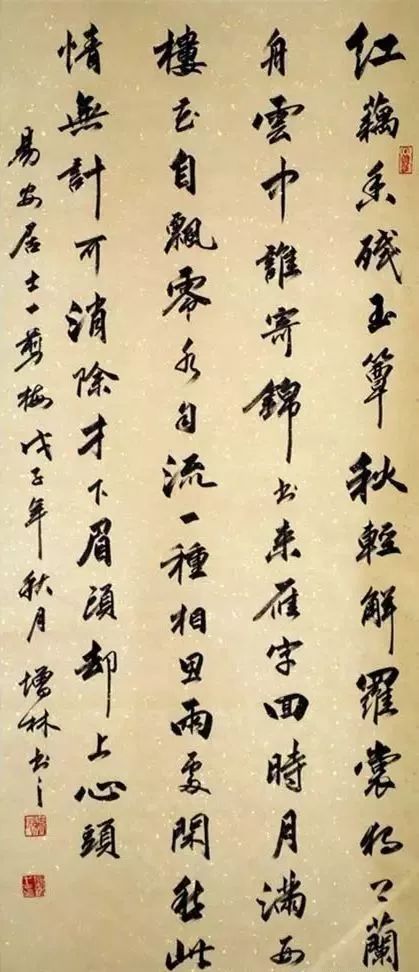 红藕香殘玉簟秋輕解羅裳獨上蘭
舟雲中誰寄錦書來雁字回時月滿西
樓花自飄零水自流一種相思兩處閑愁此
情無計可消除才下眉頭却上心頭
易安居士一剪梅戊子年秋月增林書